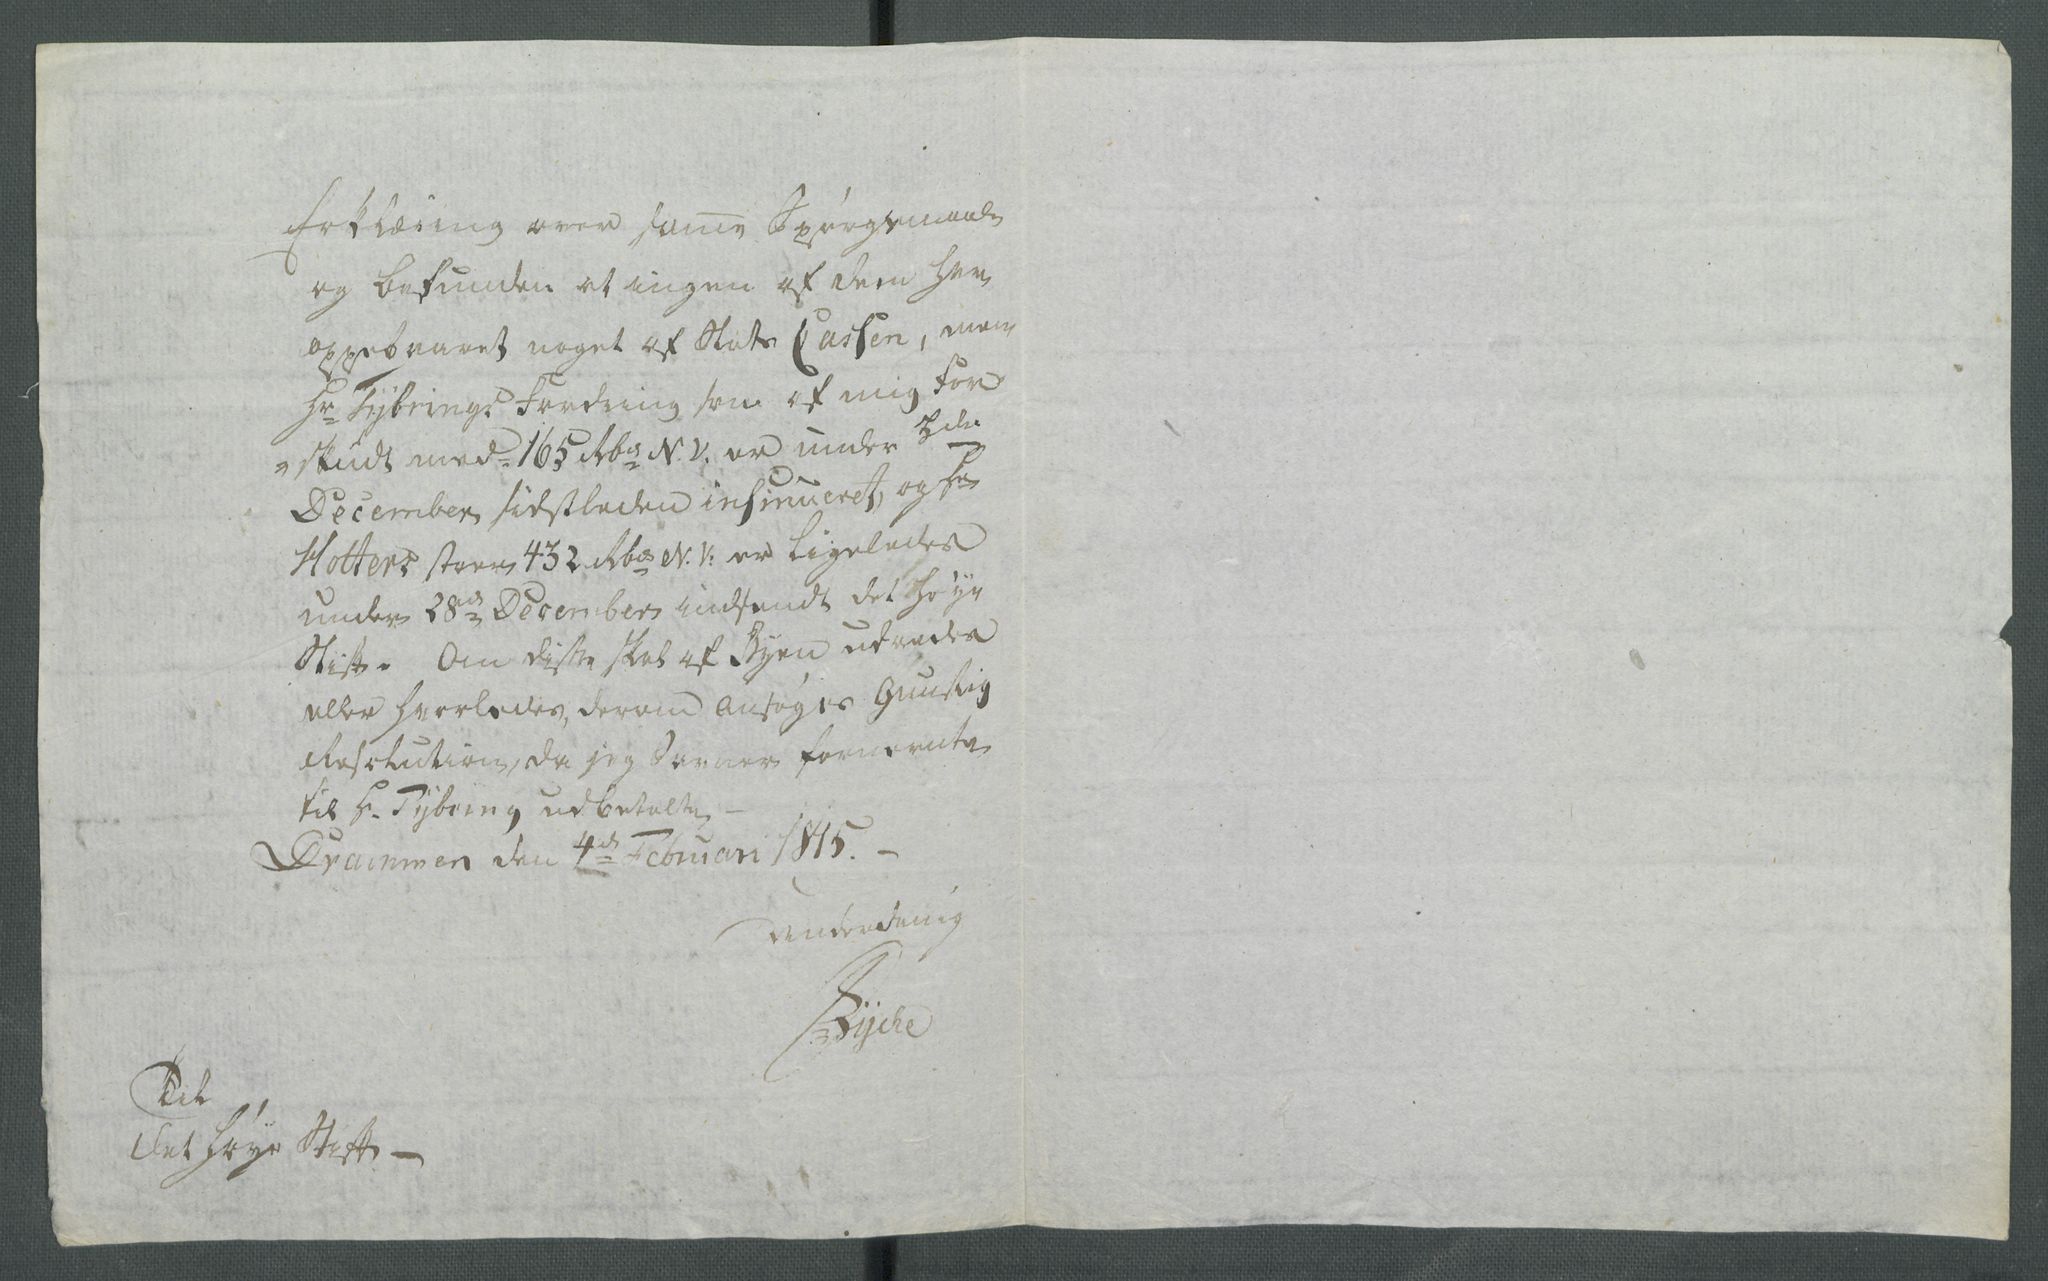 Erklæring over samme Spørgsmaale
og befunden at ingen af dem har
oppebaaret noget af Stats Cassen, men
Hr Tybrings Fordring som af mig for
skudt med 165 Rbd N.V. er under 2den
December sidstleden insinueret, og Hr
Hotters stor 432 Rbd N.V. er ligeledes
under 28de December indsendt det høye
Stift. Om disse skal af Byen udredes
eller hvorledes, derom ansøges Gunstig
Resolution, da jeg Savner fornævnte
til H. Tybring udbetalte –
Drammen den 4de Februari 1815. –
underdanig
Til
det høye Stift –